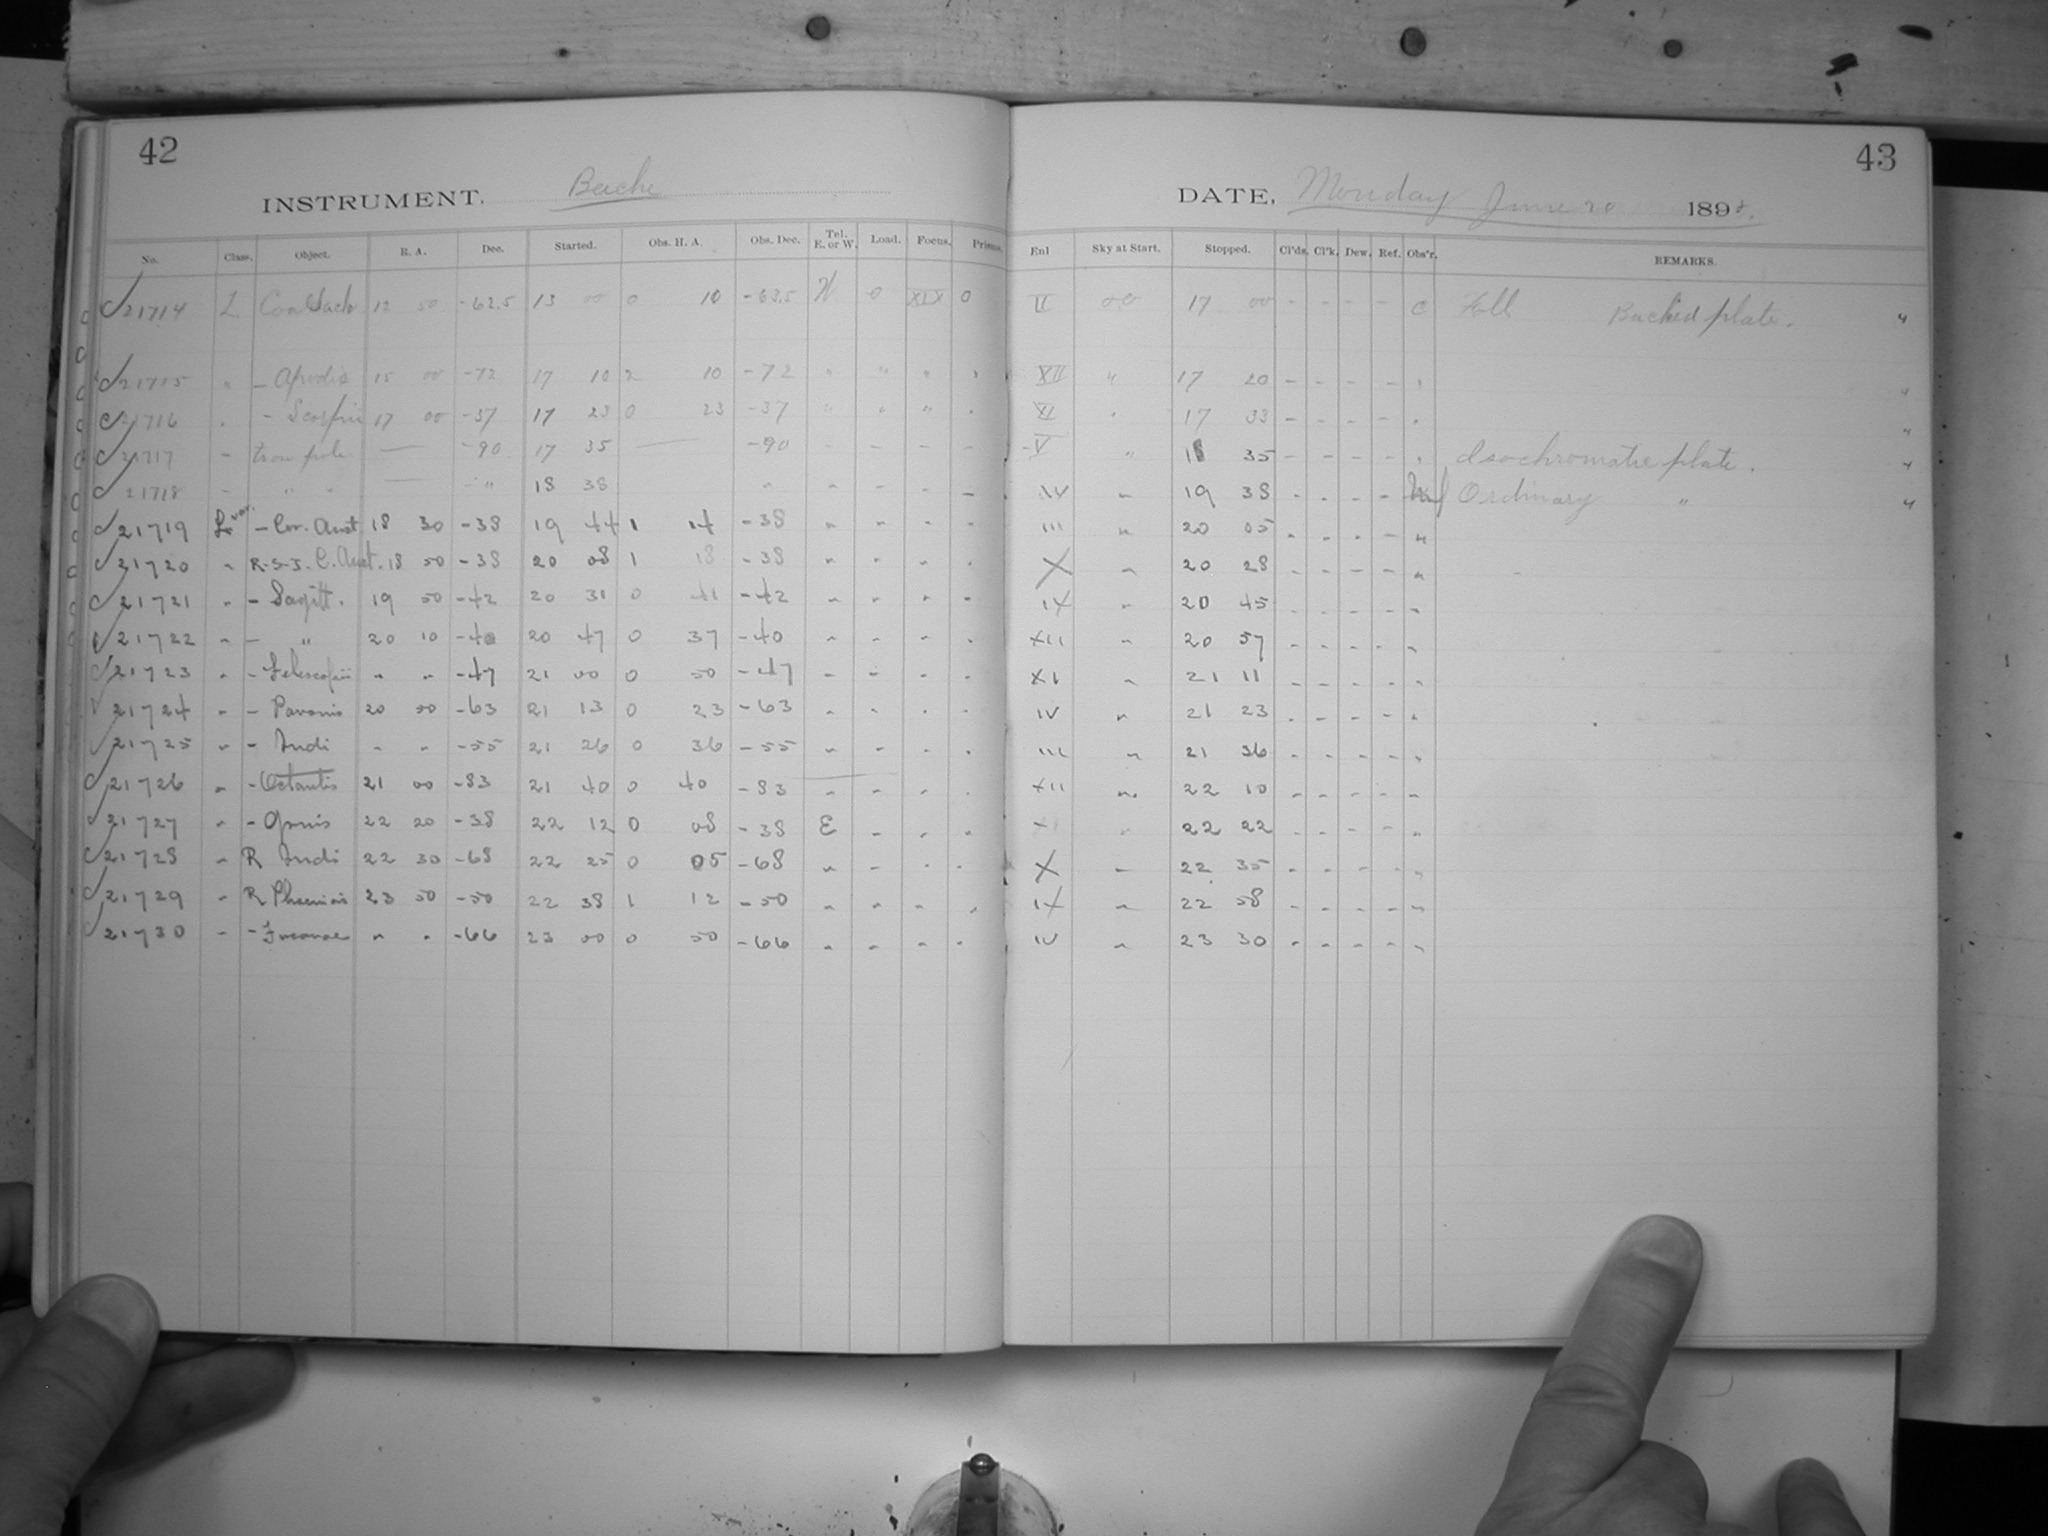 42
INSTRUMENT. Bache
No. Class. Object. R. A. Dec. Started. Obs. H. A. Obs. Dec. Tel. E. or W. Load. Focus.
21714 L. Coal Sack 12 50 -62.5 13 00 0 10 -62.5 W 0 XIX 0
21715 " - Apodis 15 00 -72 17 10 2 10 -72 " " " "
21716 " - Scorpii 17 00 -37 17 23 0 23 -37 " " " "
21717 - — -90 17 35 — -90 - - - -
21718 - " " — - " 18 38 " " - - -
21719 L var. - Cor. Aust. 18 30 -38 19 44 1 14 -38 " " " "
21720 " R-S-T. C. Aust. 18 50 -38 20 08 1 18 -38 " " " "
21721 " - Sagitt. 19 50 -42 20 31 0 41 -42 " " " "
21722 " - " 20 10 -40 20 47 0 37 -40 " " " "
21723 " - Telescopii " " -47 21 00 0 50 -47 " " " "
21724 " - Pavonis 20 50 -63 21 13 0 23 -63 " " " "
21725 " - Indi " " -55 21 26 0 36 -55 " " " "
21726 " - Octantis 21 00 -83 21 40 0 40 -83 " " " "
21727 " - Gruis 22 20 -38 22 12 0 08 -38 E " " "
21728 " R Indi 22 30 -68 22 25 0 05 -68 " " " "
21729 " R Phoenicis 23 50 -50 22 38 1 12 -50 " " " "
21730 " - Tucanae " " -66 23 00 0 50 -66 " " " "
43
DATE, Monday June 20 1898.
Enl Sky at Start. Stopped. Cl'ds. Cl'k. Dew. Ref. Obs'r. REMARKS.
II 00 17 00 - - - - C Foll. Backed plate. "
XII " 17 20 - - - - " "
XI " 17 33 - - - - " "
V " 18 35 - - - - " Isochromatic plate. "
IV " 19 38 - - - - Ordinary " "
III " 20 05 - - - - "
X " 20 28 - - - - "
IX " 20 45 - - - - "
XII " 20 57 - - - - "
XI " 21 11 - - - - "
IV " 21 23 - - - - "
III " 21 36 - - - - "
XII " 22 10 - - - - "
XI " 22 22 - - - - "
X " 22 35 - - - - "
IX " 22 58 - - - - "
IV " 23 30 - - - - "